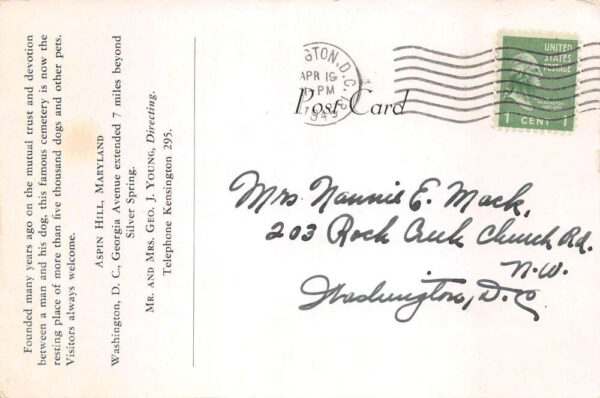 Founded many years ago on the mutual trust and devotion
between a man and his dog, this famous cemetery is now the
resting place of more than five thousand dogs and other pets.
Visitors always welcome.
ASPIN HILL, MARYLAND
Washington, D. C., Georgia Avenue extended 7 miles beyond
Silver Spring.
MR. AND MRS. GEO. J. YOUNG, Directing.
Telephone Kensington 295.
GTON, D.C.
APR 19
PM
1943
Post Card
UNITED
STATES
POSTAGE
1 CENT 1
Mrs Nannie E. Mack,
203 Rock Creek Church Rd.
N.W.
Washington, D.C.